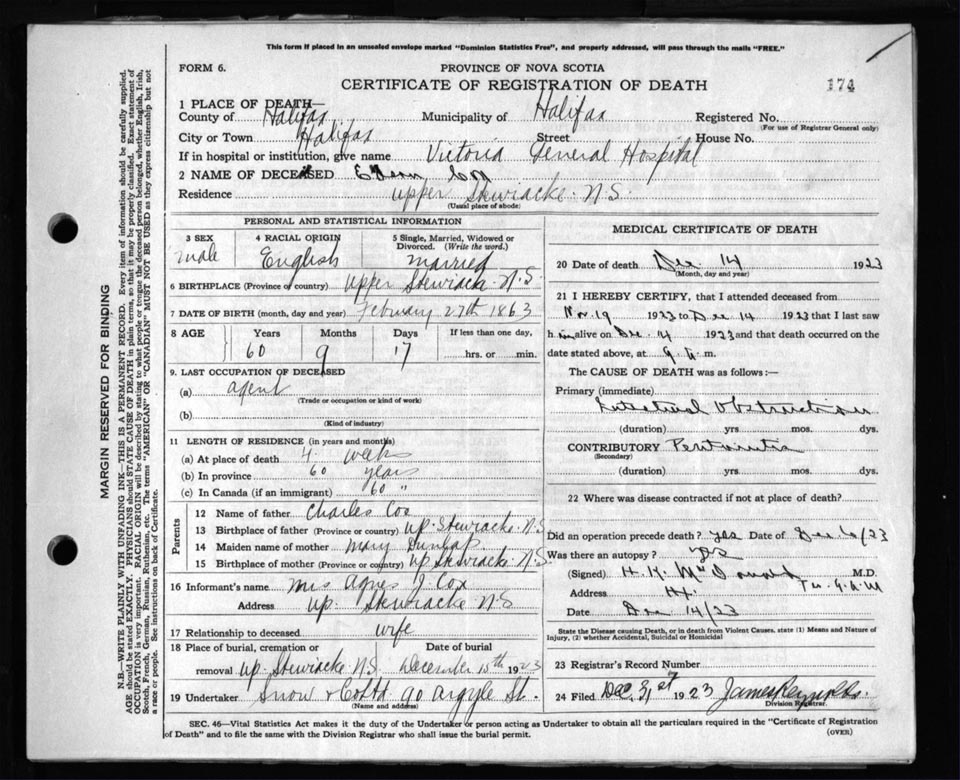 This form if placed in an unsealed envelope marked "Dominion Statistics Free", and properly addressed, will pass through the mails "FREE."
FORM 6.
PROVINCE OF NOVA SCOTIA
CERTIFICATE OF REGISTRATION OF DEATH
174
1 PLACE OF DEATH—
County of Halifax Municipality of Halifax Registered No.
(For use of Registrar General only)
City or Town Halifax Street House No.
If in hospital or institution, give name Victoria General Hospital
2 NAME OF DECEASED Cox
Residence Upper Stewiacke N.S.
(Usual place of abode)
MARGIN RESERVED FOR BINDING
N.B.—WRITE PLAINLY WITH UNFADING INK—THIS IS A PERMANENT RECORD. Every item of information should be carefully supplied.
AGE should be stated EXACTLY. PHYSICIANS should STATE CAUSE OF DEATH in plain terms, so that it may be properly classified. Exact statement of
OCCUPATION is very important. RACIAL ORIGIN will be described by stating to what people or tongue the deceased person belonged, whether English, Irish,
Scotch, French, German, Russian, Ruthenian, etc. The terms "AMERICAN" OR "CANADIAN" MUST NOT BE USED as they express citizenship but not
a race or people. See instructions on back of Certificate.
PERSONAL AND STATISTICAL INFORMATION
3 SEX 4 RACIAL ORIGIN 5 Single, Married, Widowed or
Divorced. (Write the word.)
male English married
6 BIRTHPLACE (Province or country) Upper Stewiacke N.S
7 DATE OF BIRTH (month, day and year) February 27th 1863
8 AGE Years Months Days If less than one day,
60 9 17 hrs. or min.
9. LAST OCCUPATION OF DECEASED
(a) agent
(Trade or occupation or kind of work)
(b)
(Kind of industry)
11 LENGTH OF RESIDENCE (in years and months)
(a) At place of death 4 weeks
(b) In province 60 years
(c) In Canada (if an immigrant) 60 "
Parents
12 Name of father Charles Cox
13 Birthplace of father (Province or country) Up. Stewiacke. N.S
14 Maiden name of mother Mary Dunlap
15 Birthplace of mother (Province or country) Up Stewiacke. N.S
16 Informant's name Mrs Agnes J. Cox
Address Up. Stewiacke N.S
17 Relationship to deceased wife
18 Place of burial, cremation or Date of burial
removal Up. Stewiacke N.S. December 15th 1923
19 Undertaker Snow & Co Ltd 90 Argyle St.
(Name and address)
MEDICAL CERTIFICATE OF DEATH
20 Date of death Dec. 14 1923
(Month, day and year)
21 I HEREBY CERTIFY, that I attended deceased from
Nov. 19 1923 to Dec 14 1923 that I last saw
h im alive on Dec. 14 1923 and that death occurred on the
date stated above, at m.
The CAUSE OF DEATH was as follows:—
Primary (immediate)
Intestinal Obstruction
(duration) yrs. mos. dys.
CONTRIBUTORY Peritonitis
(Secondary)
(duration) yrs. mos. dys.
22 Where was disease contracted if not at place of death?
Did an operation precede death? yes Date of Dec /23
Was there an autopsy? yes
(Signed) H. K. McDonald M.D.
Address Hx.
Date Dec 14/23
State the Disease causing Death, or in death from Violent Causes, state (1) Means and Nature of
Injury, (2) whether Accidental, Suicidal or Homicidal
23 Registrar's Record Number
24 Filed Dec. 31st 1923 James Reynolds
Division Registrar.
SEC. 46—Vital Statistics Act makes it the duty of the Undertaker or person acting as Undertaker to obtain all the particulars required in the "Certificate of Registration
of Death" and to file the same with the Division Registrar who shall issue the burial permit.
(OVER)